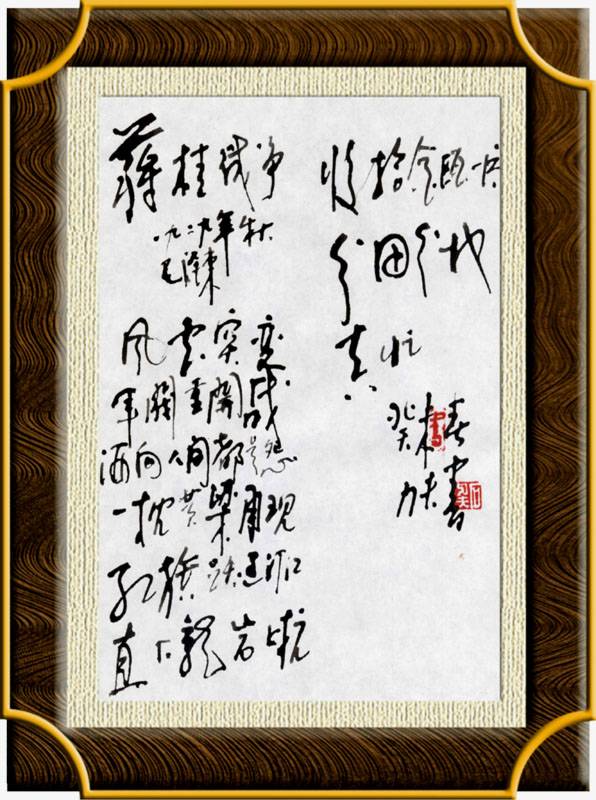 蒋桂战争
一九二九年秋
毛泽东
风云突变
军阀重開战
洒向人间都是怨
一枕黄粱再现
红旗跃过汀江
直下龍岩上杭
收拾金瓯一片
分田分地
真忙
癸未春